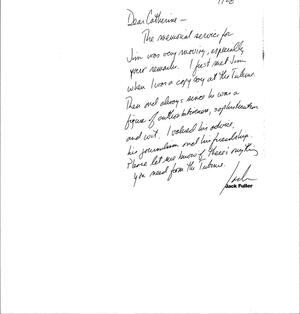 Dear Catherine —
The memorial service for
Jim was very moving, especially
your remarks. I first met Jim
when I was a copy boy at the Tribune.
Then and always since he was a
figure of sophistication
and wit. I valued his advice,
his journalism and his friendship.
Please let me know if there's anything
you need from the Tribune.
Jack
Jack Fuller